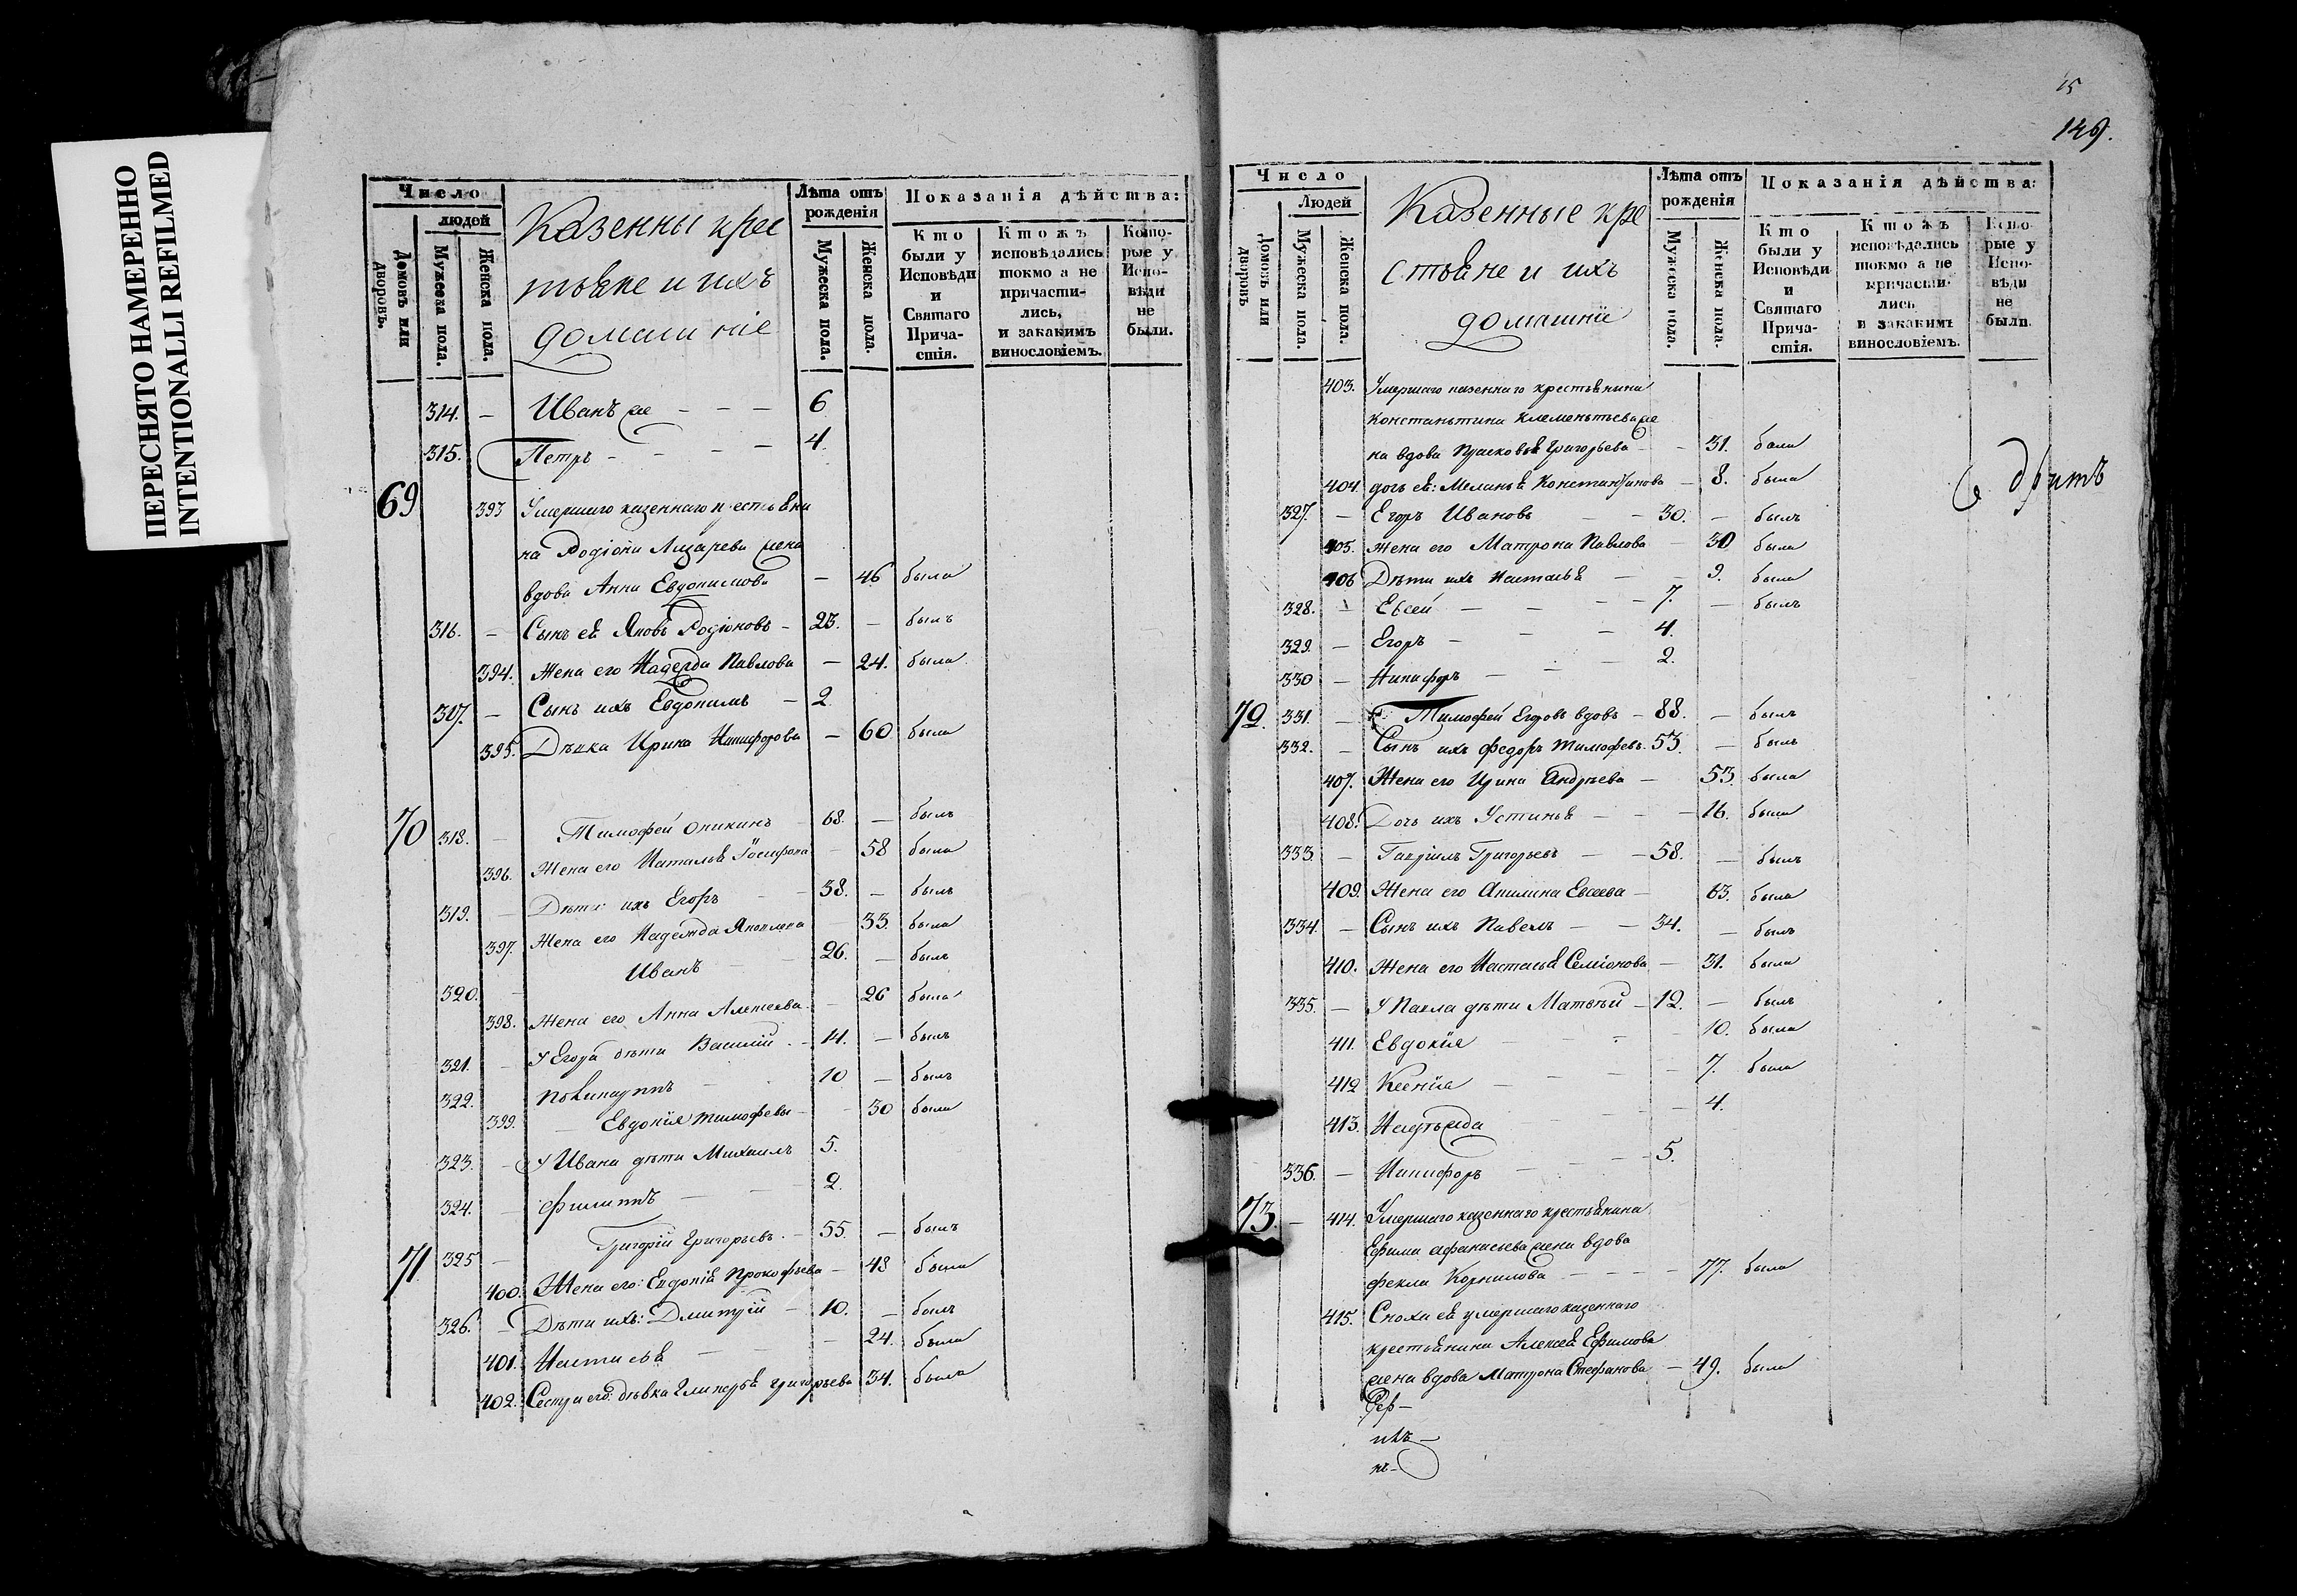 ПЕРЕСНЯТО НАМЕРЕННО
INTENTIONALLI REFILMED
Число
людей
Домовъ или дворовъ.
Мужеска пола.
Женска пола.
Казенны крес
тьяне и ихъ
домашніе
Лѣта отъ рожденія
Мужеска пола.
Женска пола.
Показанія дѣйства:
Кто были у Исповѣди и Святаго Причастія.
Ктожъ исповѣдались токмо а не причастились, и закакимъ винословіемъ.
Которые у Исповѣди не были.
314. — Иванъ же — — — 6
315. Петръ - - - — 4
69 393 Умершаго казеннаго крестьяни
на Родіона Лазарева жена
вдова Анна Евдокимова — 46 была
316. — Сынъ ея Яковъ Родіоновъ — 23. — былъ
394. Жена его Надежда Павлова — 24. была
317. — Сынъ ихъ Евдокимъ — 2
395. Дѣвка Ирина Никифорова — 60 была
70 318. — Тимофей Оникинъ 68. — былъ
396. Жена его Наталья Іосифова 58 была
319. — Дѣти ихъ Егоръ 38. — былъ
397. Жена его Надежда Яковлева 33. была
320. — Иванъ 26. — былъ
398. Жена его Анна Алексеева — 26 была
321. — У Егора дѣти Василій — 14. — былъ
322. 10 — былъ
399. — Евдокия Тимофева — 30 была
323. — У Ивана дѣти Михаилъ 5.
324. — Филиппъ — — 2.
71 325 — Григорій Григорьевъ — 55. — былъ
400. Жена его: Евдокія Прокофьева — 48 была
326. — Дѣти ихъ: Дмитрій — 10. — былъ
401. Настасья — — 24. была
402. Сестра его: дѣвка Гликерья Григорьева 34. была
15
149.
Число
Людей
Домовъ или дворовъ
Мужеска пола.
Женска пола.
Казенные кре
стьяне и ихъ
домашніе
Лѣта отъ рожденія
Мужеска пола.
Женска пола.
Показанія дѣйства:
Кто были у Исповѣди и Святаго Причастія.
Ктожъ исповѣдались токмо а не причастились и закакимъ винословіемъ.
Которые у Исповѣди не были.
403. Умершаго казеннаго крестьянина
Константина Клементьева же
на вдова Прасковья Григорьева — 31. была
404. дочь ея: Меланья Константинова — 8. была
327. — Егоръ Ивановъ — 30. — былъ
405. Жена его Матрона Павлова — 30 была
406 Дѣти ихъ Настасья — 9. была
328. — Евсей — — — 7. — былъ
329. — Егоръ — — — 4.
330 — Никифоръ — — — 2.
72. 331. — Тимофей Егоровъ вдовъ — 88. — былъ
332. — Сынъ ихъ Федоръ Тимофевъ. 53. — былъ
407. Жена его Ирина Андрѣева — 53. была
408. Дочь ихъ Устинья — — 16. была
333. — Гавріилъ Григорьевъ — 58. — былъ
409. Жена его Акилина Евсеева — 63. была
334. — Сынъ ихъ Павелъ — — 34. — былъ
410. Жена его Настасья Семіонова — 31. была
335. — У Павла дѣти Матвѣй — 12. — былъ
411. Евдокія — — 10. была
412 Ксенія — — 7. была
413. — — 4.
336. — Никифоръ — — 5.
73. — 414. Умершаго казеннаго крестьянина
Ефима Афанасьева жена вдова
Фекла Корнилова — — — 77. была
415. Сноха ея умершаго казеннаго
крестьянина Алексея Ефимова
жена вдова Матрона Стефанова — 49. была